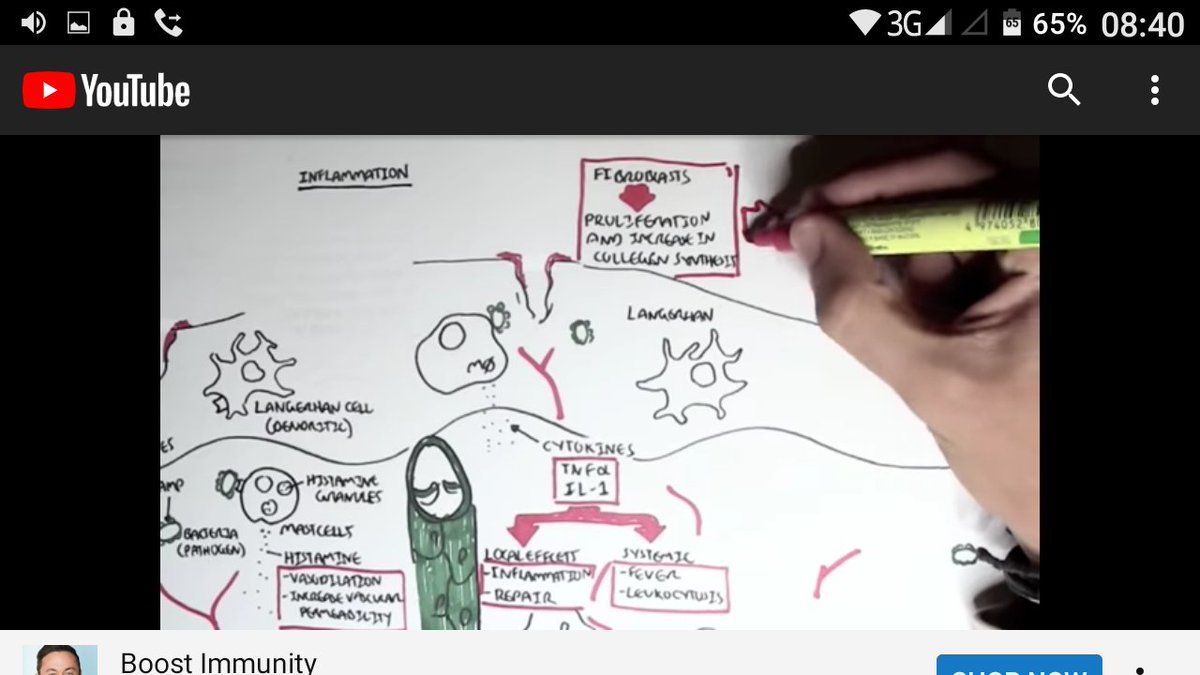 3G
65
65%
08:40
YouTube
INFLAMMATION
FIBROBLASTS
PROLIFERATION
AND INCREASE IN
COLLEGEN SYNTHESIS
4 974052 8
LANGERHAN
MØ
LANGERHAN CELL
(DENDRITIC)
CYTOKINES
TNFα
IL-1
ES
AMP
HISTAMINE
GRANULES
BACTERIA
(PATHOGEN)
MASTCELLS
HISTAMINE
-VASODILATION
-INCREASE VASCULAR
PERMEABILITY
LOCAL EFFECTS
-INFLAMMATION
-REPAIR
SYSTEMIC
-FEVER
-LEUKOCYTOSIS
Boost Immunity
SHOP NOW